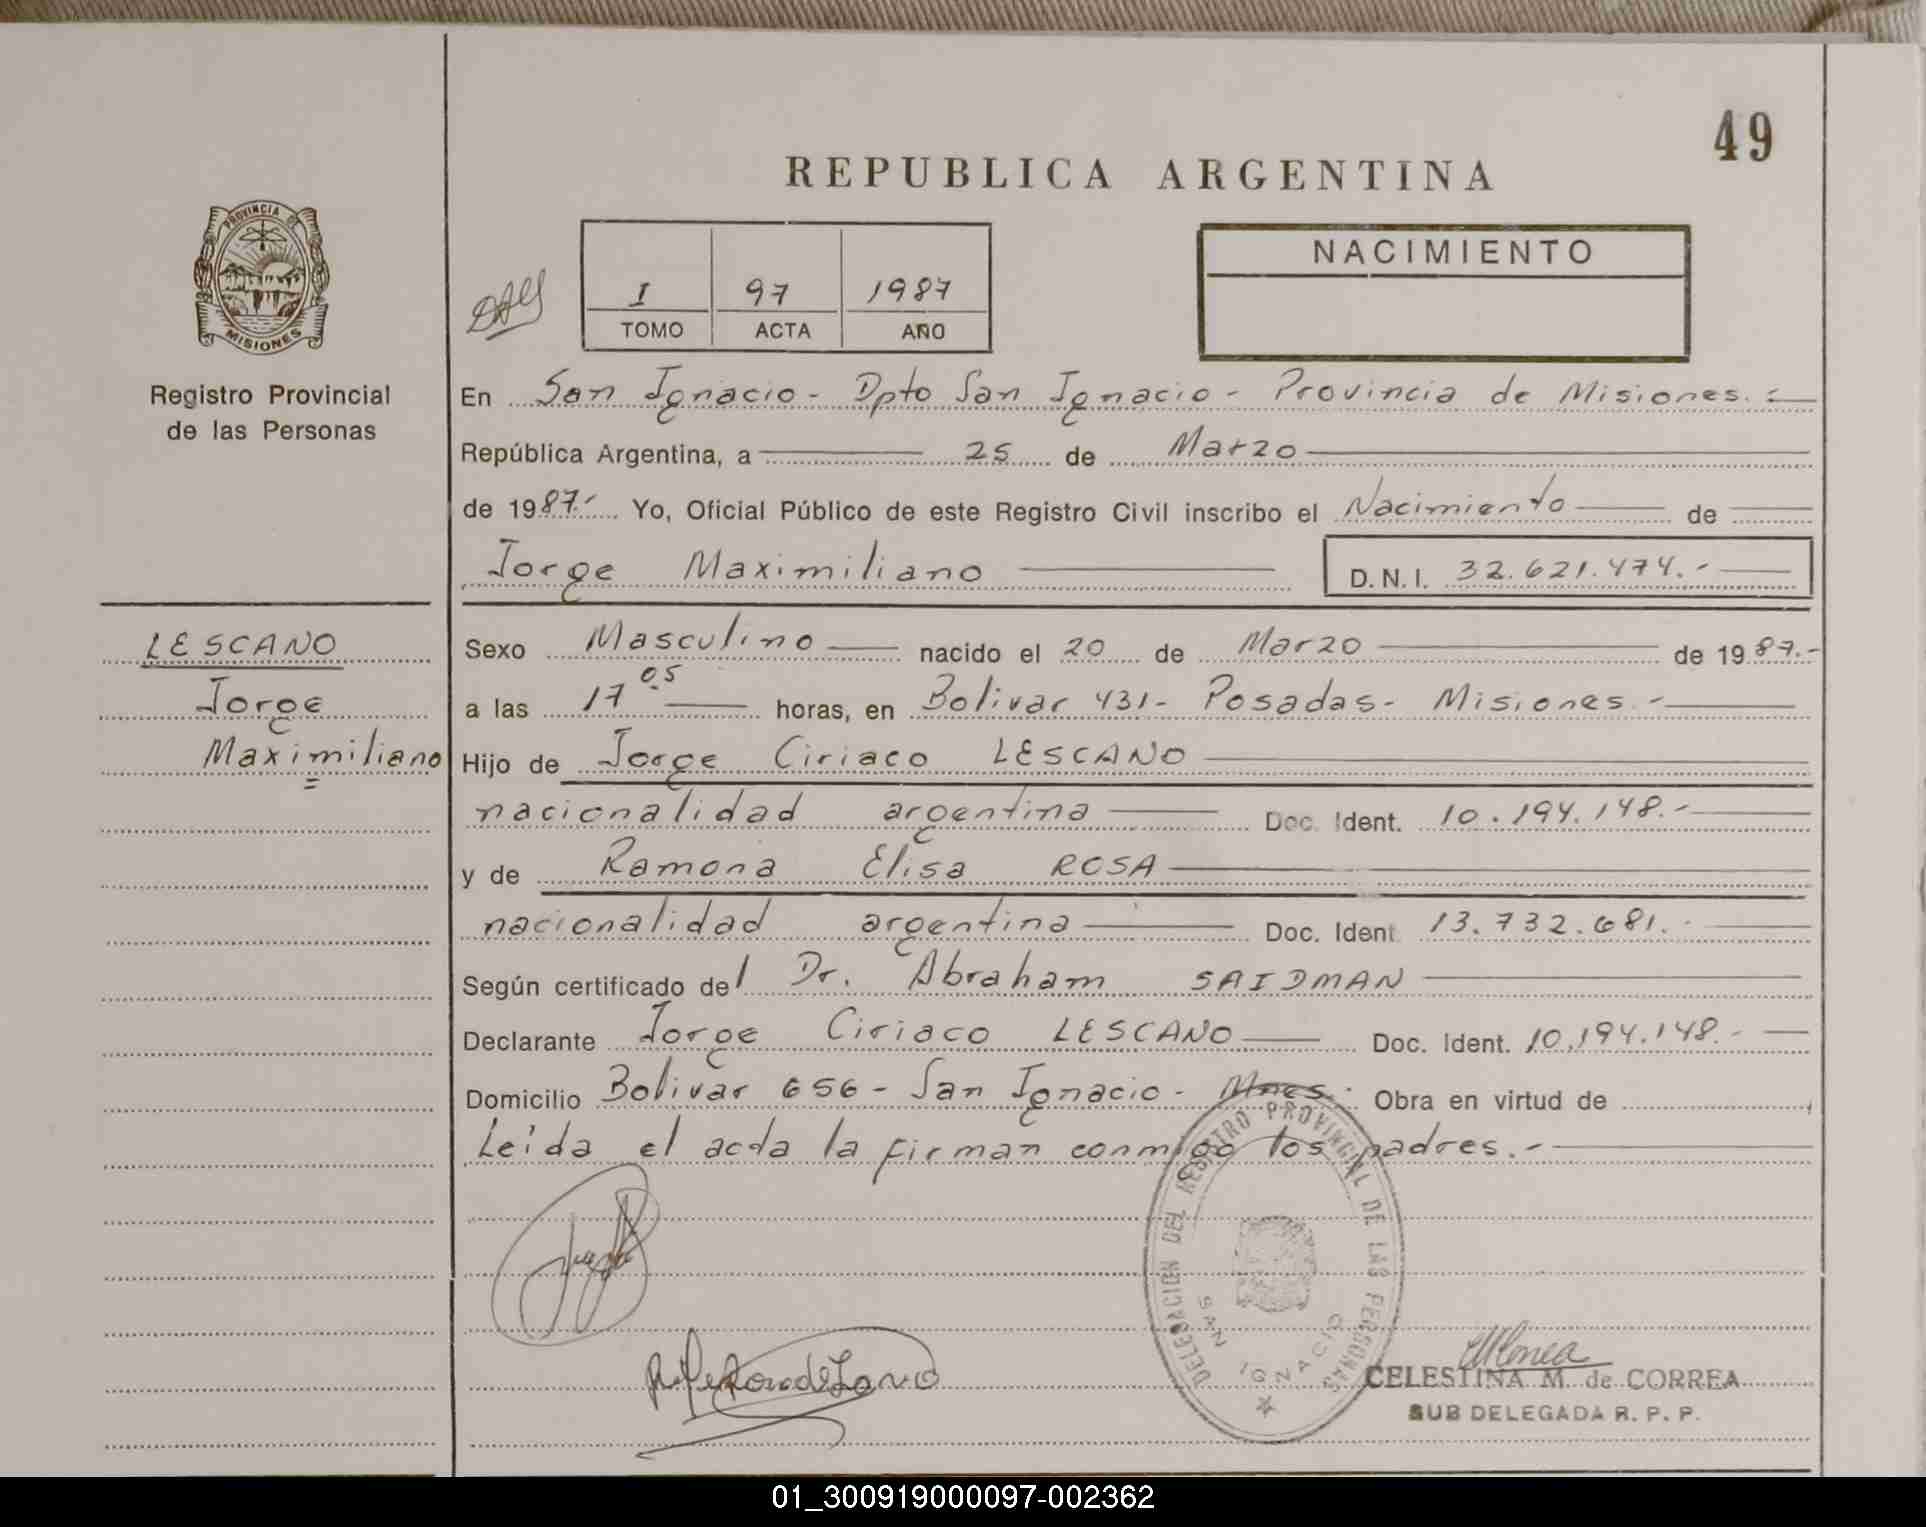 49
REPUBLICA ARGENTINA
PROVINCIA DE
MISIONES
Registro Provincial
de las Personas
I 97 1987
TOMO ACTA AÑO
NACIMIENTO
En San Ignacio - Dpto San Ignacio - Provincia de Misiones.-
República Argentina, a 25 de Marzo
de 1987.- Yo, Oficial Público de este Registro Civil inscribo el Nacimiento de
Jorge Maximiliano D.N.I. 32.621.474.-
LESCANO
Jorge
Maximiliano
Sexo Masculino nacido el 20 de Marzo de 1987.-
a las 17 05 horas, en Bolivar 431- Posadas- Misiones.-
Hijo de Jorge Ciriaco LESCANO
nacionalidad argentina Doc. Ident. 10.194.148.-
y de Ramona Elisa ROSA
nacionalidad argentina Doc. Ident 13.732.681.-
Según certificado del Dr. Abraham SAIDMAN
Declarante Jorge Ciriaco LESCANO Doc. Ident. 10.194.148.-
Domicilio Bolivar 656 - San Ignacio - Mnes.- Obra en virtud de
Leída el acta la firman conmigo los padres.-
DELEGACION DEL REGISTRO PROVINCIAL DE LAS PERSONAS
SAN IGNACIO
CELESTINA M. de CORREA
SUB DELEGADA R. P. P.
01_300919000097-002362